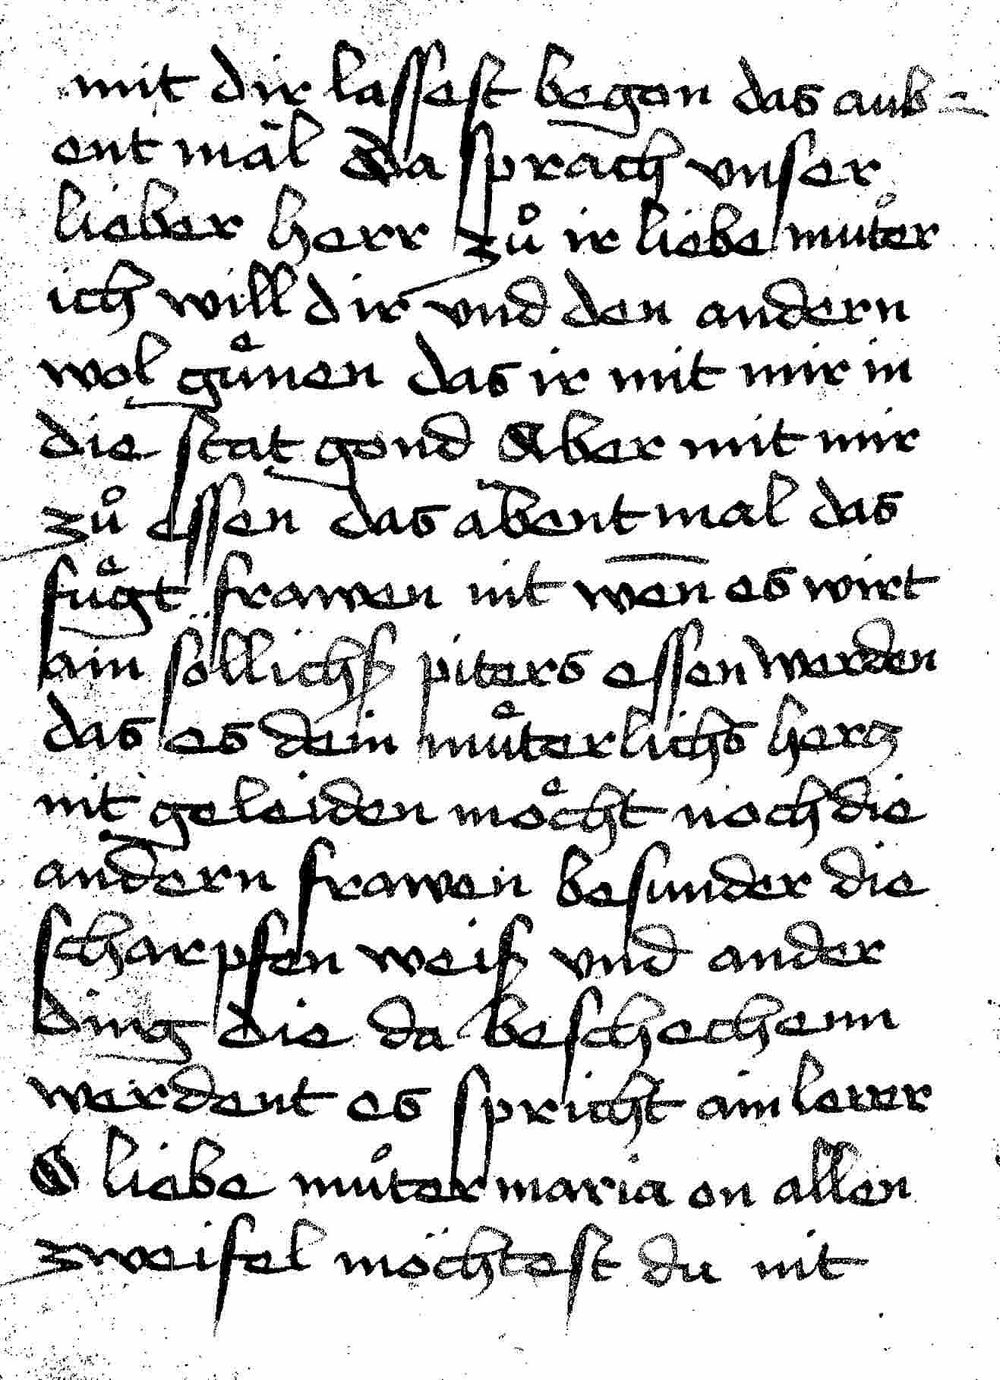 mit dir lassest began das aub=
ent mal Da sprach vnser
lieber herr zuͦ ir liebe muͦter
ich will dir vnd den andern
wol guͤnen das ir mit mir in
die stat gond Aber mit mir
zuͦ essen das abentmal das
fuͤgt frawen nit wen̄ es wirt
ain söllichß piters essen werden
das es dein muͤterlichs hercz
nit geleiden moͤcht noch die
andern frawen besunder die
scharpfen weiß vnd ander
ding die da beschechenn
werdent es spricht ain lerer
O liebe muͦter maria on allen
zweifel möchtest du nit